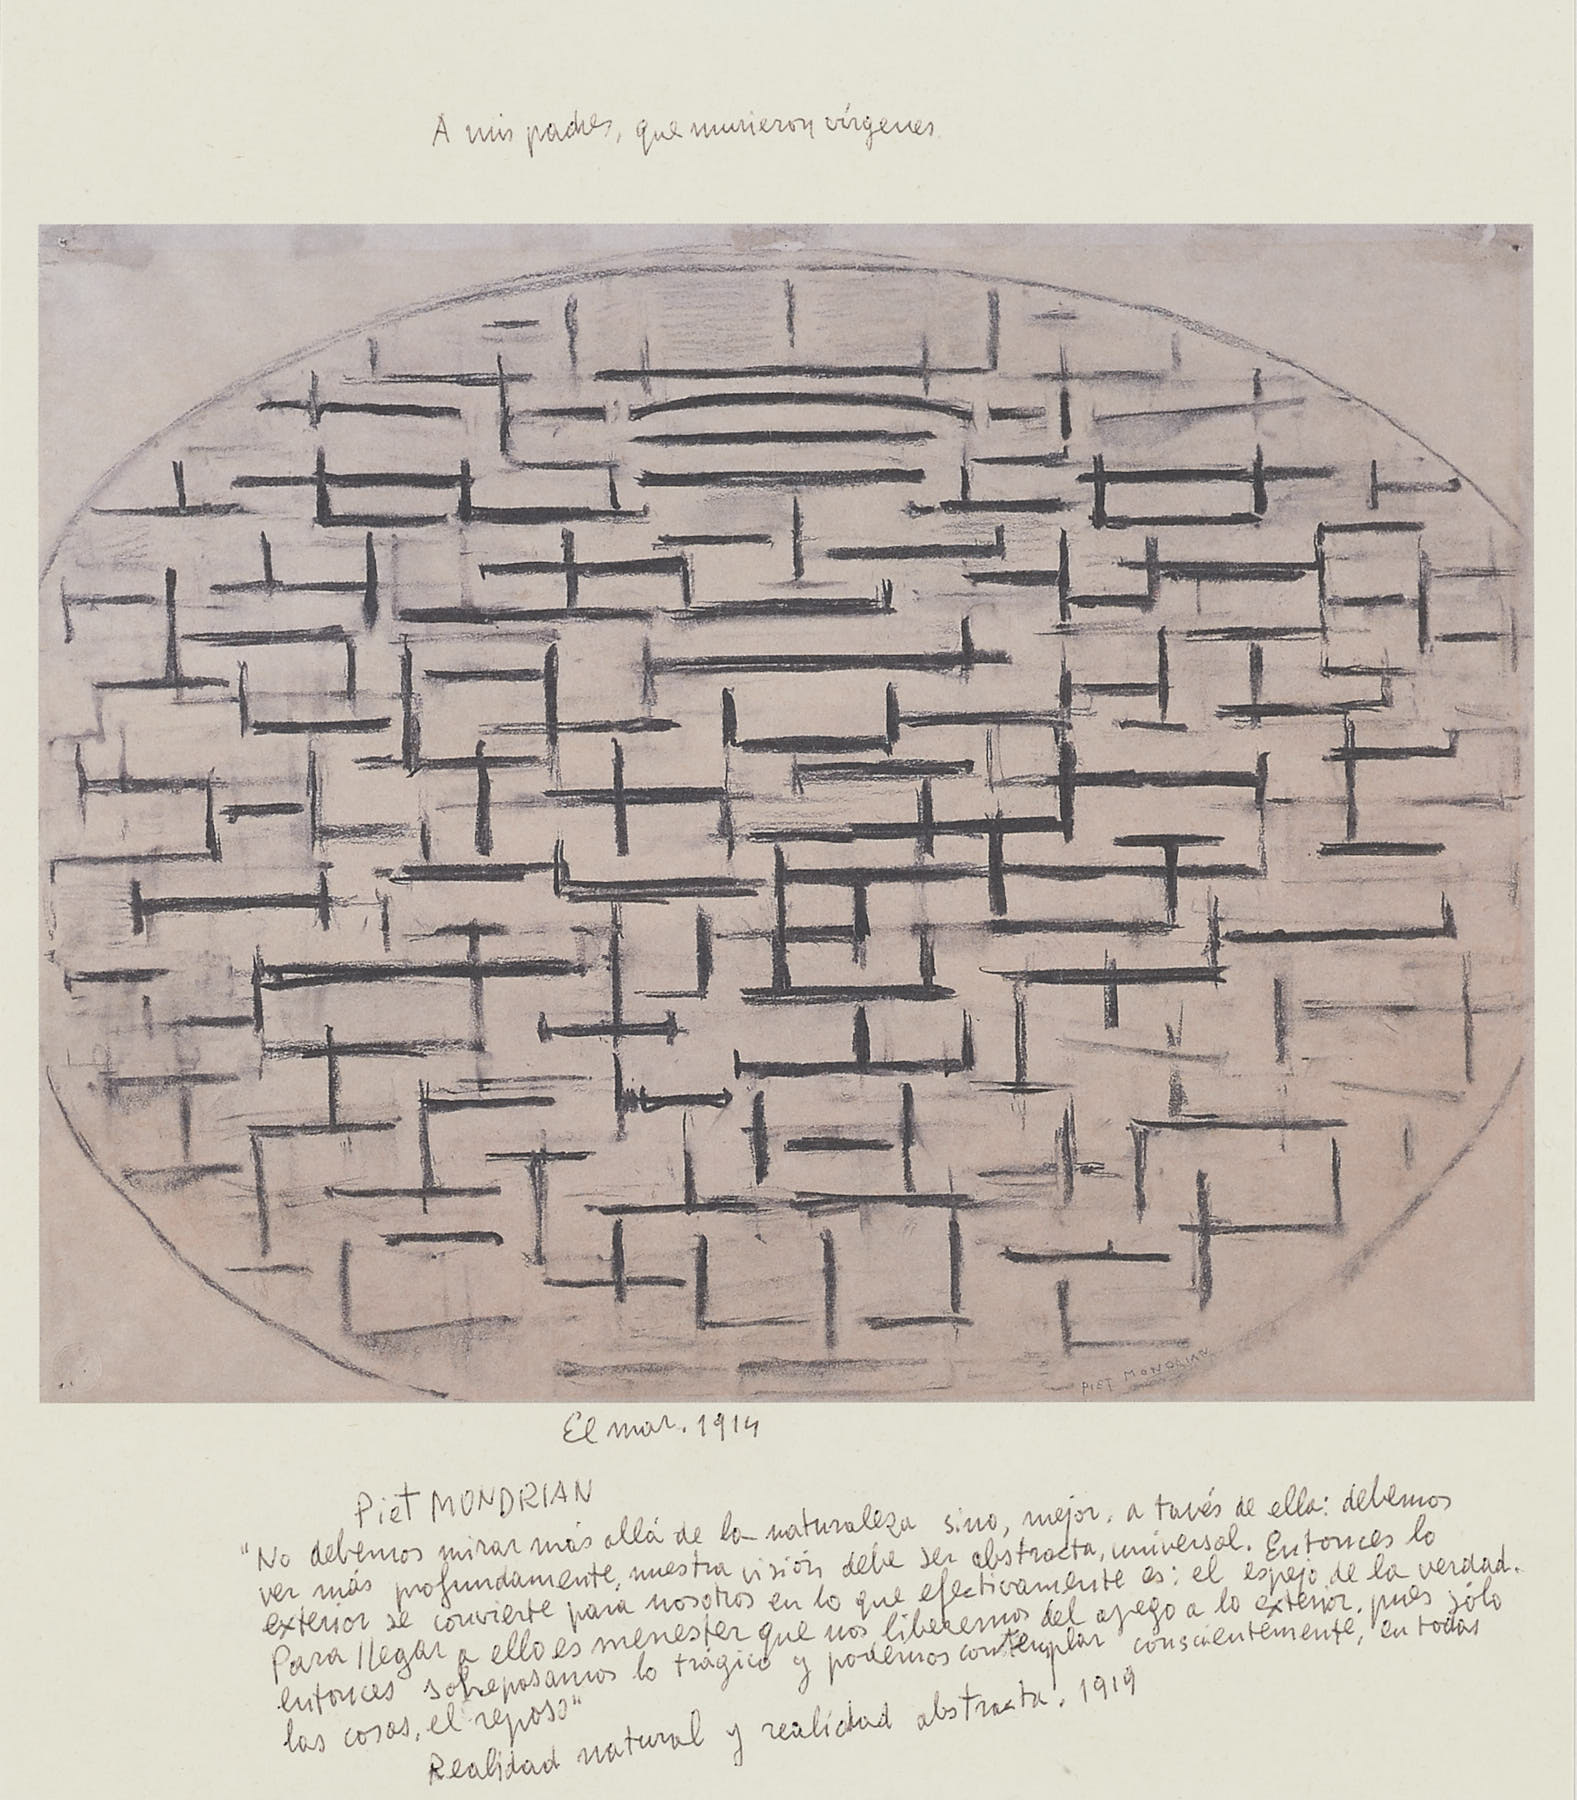 A mis padres, que murieron vírgenes
PIET MONDRIAN
El mar. 1914
Piet MONDRIAN
"No debemos mirar más allá de la naturaleza sino, mejor, a tavés de ella: debemos
ver más profundamente, nuestra visión debe ser abstracta, universal. Entonces lo
exterior se convierte para nosotros en lo que efectivamente es: el espejo de la verdad.
Para llegar a ello es menester que nos liberemos del apego a lo exterior, pues sólo
entonces sobrepasamos lo trágico y podemos contemplar conscientemente, en todas
las cosas, el reposo"
Realidad natural y realidad abstracta. 1919